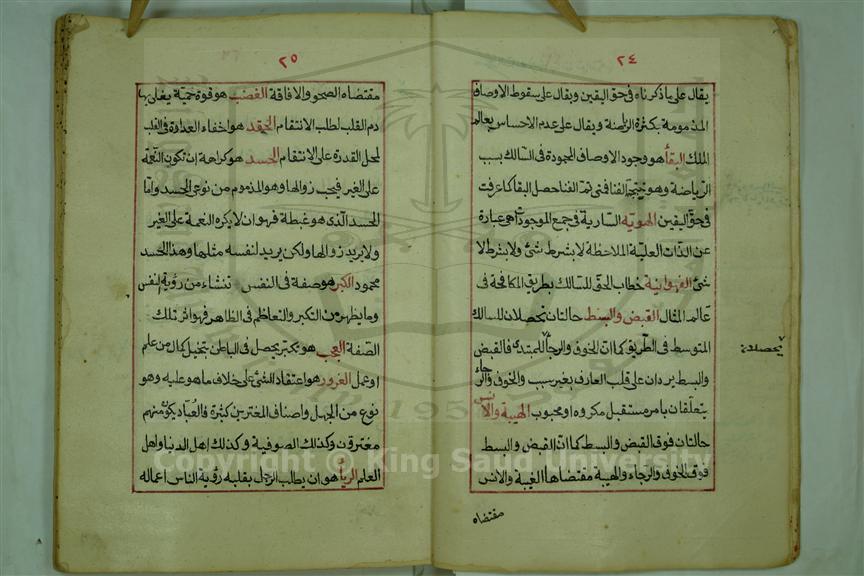 ٢٤
يقال على ما ذكرناه في حق اليقين ويقال على سقوط الاوصاف
المذمومة بكثرة الرياضة ويقال على عدم الاحساس بعالم
الملك البقأ هو وجود الاوصاف المحمودة في السالك بسبب
الرياضة وهو نتيجة الفنا فمتى تم الفنا حصل البقا كما عرفت
في حق اليقين الهوية السارية في جمع الموجودات هي عبارة
عن الذات العلية الملاحظة لا بشرط شئ ولا بشرط لا
شئ الفهوانية خطاب الحق للسالك بطريق المكافحة في
عالم المثال القبض والبسط حالتان تحصلان للسالك
المتوسط في الطريق كما ان الخوف والرجأ للمبتدى فالقبض
والبسط يردان على قلب العارف بغير سبب والخوف والرجاء
يتعلقان بامر مستقبل مكروه او محبوب الهيبة والانس
حالتان فوق القبض والبسط كما ان القبض والبسط
فوق الخوف والرجاء والهيبة مقتضاها الغيبة والانس
مقتضاه
٢٥
مقتضاه الصحو والافاقة الغضب هو قوة حمية يغلى بها
دم القلب لطلب الانتقام الحقد هو اخفاء العداوة في القلب
لمحل القدرة على الانتقام الحسد هو كراهة ان تكون النعمة
على الغير فيحب زوالها وهو المذموم من نوعي الحسد واما
الحسد الذي هو غبطة فهو ان لا يكره النعمة على الغير
ولا يريد زوالها ولكن يريد لنفسه مثلها وهذا الحسد
محمود الكبر هو صفة في النفس تنشاء من رؤية النفس
وما يظهر من التكبر والتعاظم في الظاهر فهو اثر تلك
الصفة العجب هو تكبر يحصل في الباطن بتخيل كمال من علم
او عمل الغرور هو اعتقاد الشئ على خلاف ما هو عليه وهو
نوع من الجهل واصناف المغترين كثيرة فالعباد يكون منهم
مغترون وكذلك الصوفية وكذلك اهل الدنيا واهل
العلم الريأ هو ان يطلب الرجل بقلبه رؤية الناس اعماله
Copyright © King Saud University
1957